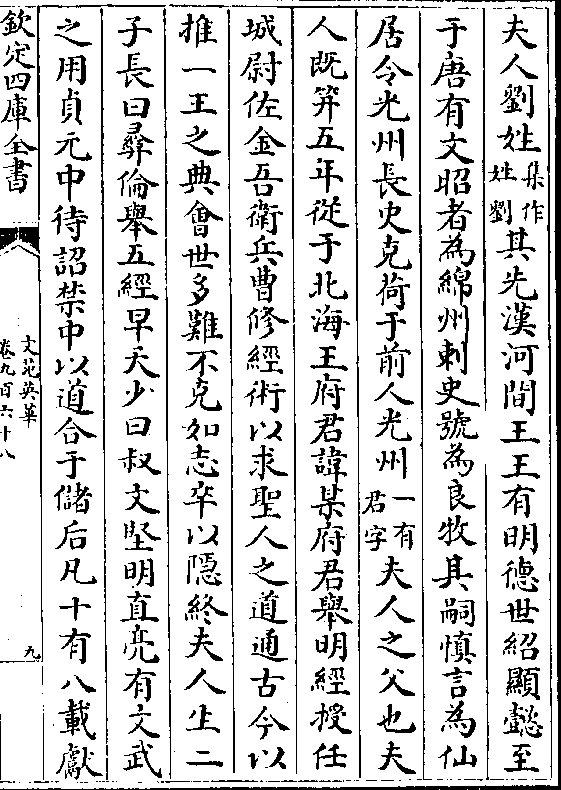 夫人劉姓集作姓劉其先漢河間王王有明德世紹顯懿至
于唐有文昭者為綿州刺史號為良牧其嗣慎言為仙
居令光州長史克荷于前人光州一有君字夫人之父也夫
人既笄五年從于北海王府君諱某府君舉明經授任
城尉佐金吾衛兵曹修經術以求聖人之道通古今以
推一王之典會世多難不克如志卒以隱終夫人生二
子長曰彝倫舉五經早夭少曰叔文堅明直亮有文武
之用貞元中待詔禁中以道合于儲后凡十有八載獻
欽定四庫全書
文苑英華
卷九百六十八
九